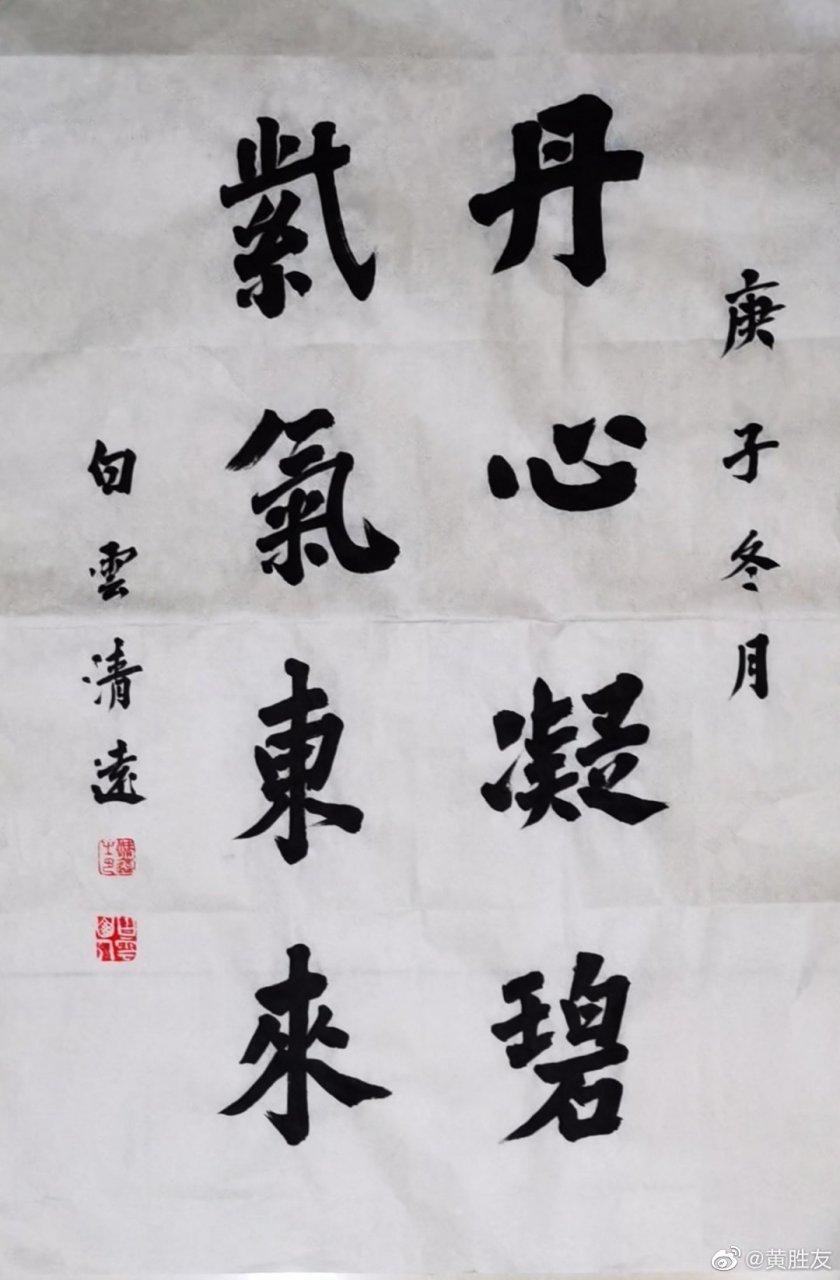 庚子冬月
丹心凝碧
紫氣東來
白雲清遠
@黄胜友